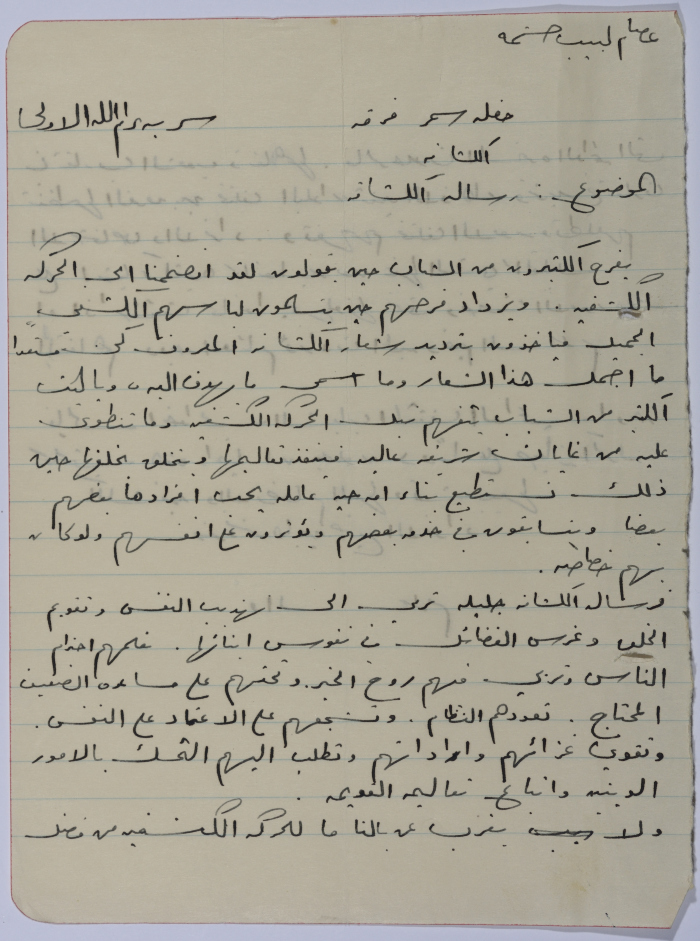 عصام لبيب حشمه
حفله سمر فرقه سريه رام الله الاولى
الكشافه
الموضوع : رساله الكشافه
يفرح الكثيرون من الشباب حين يقولون لقد انضممنا الى الحركه
الكشفيه. ويزداد فرحهم حين يتسلمون لباسهم الكشفي
الجميل فياخذون بترديد شعار الكشافه المعروف كن مستعدا
ما اجمل هذا الشعار وما اسمى ما يهدف اليه، وياليت
الكثير من الشباب يتفهم تلك الحركه الكشفيه وما تنطوي
عليه من غايات شريفه عاليه فينفذ تعاليمها ويتخلق بخلقها حين
ذلك نستطيع بناء امه حيه عامله يحب افرادها بعضهم
بعضا ويتسابقون في خدمه بعضهم ويؤثرون على انفسهم ولو كان
بهم خصاصه.
فرساله الكشافه جليله ترمي الى تهذيب النفس وتقويم
الخلق وغرس الفضائل في نفوس ابنائها. فعلمهم احترام
الناس وتربي فيهم روح الخير وتحثهم على مساعده الضعيف
المحتاج. تعودهم النظام. وتشجعهم على الاعتماد على النفس.
وتقوي عزائمهم واراداتهم وتطلب اليهم التمسك بالامور
الدينيه واتباع تعاليمه القويمه.
ولا يغرب عن بالنا ما للحركه الكشفيه من فضل